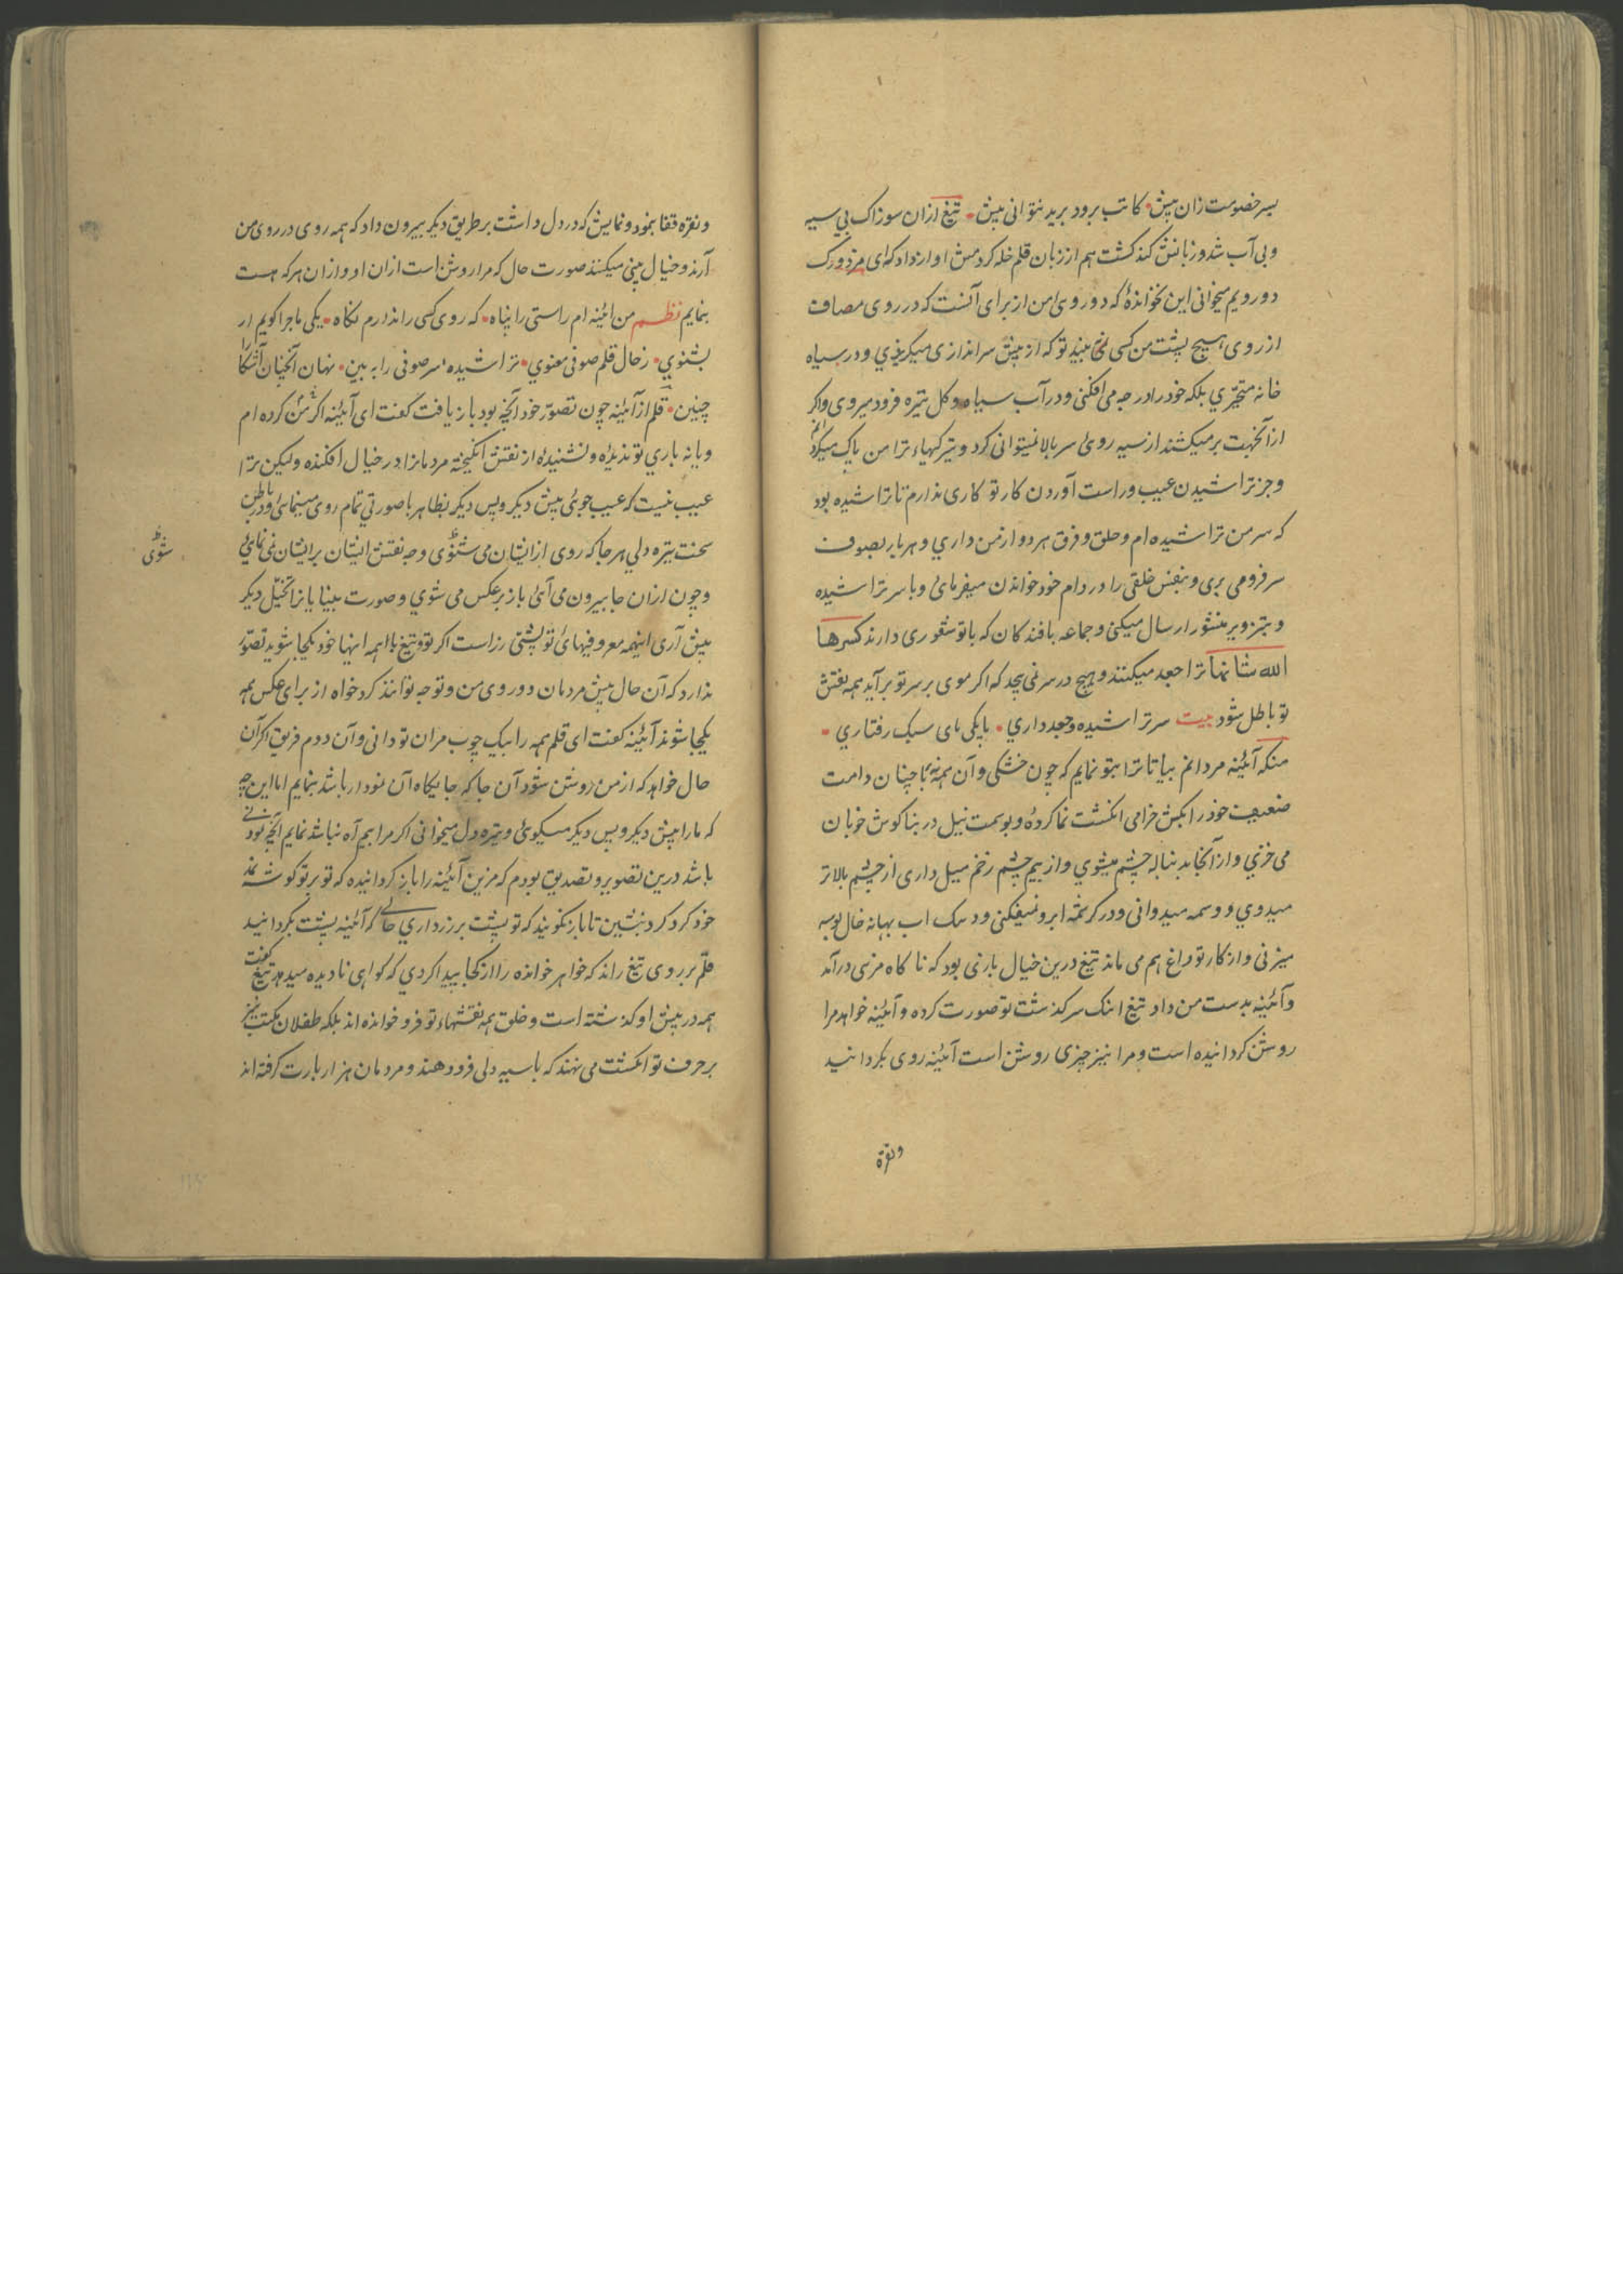 بسر خصومت زان پیش کاتب برود برید نتوانی پیش تیغ ازان سوزاک بی سیه
وبی آب شد و زبانش کند گشت هم از زبان قلم خله کردمش اواز داد که ای
دو رویم میخوانی این نخواندهٔ که دو روی من از برای آنست که در روی مصاف
از روی هیچ پشت من کسی نمی بیند تو که از پیش سراندازی میگریزی و در سیاه
خانه متحیری بلکه خود را در چه می افکنی و در آب سیاه و کل تیره فرود میروی واکر
ازانجهت برمیکشند از سیه روئ سر بالا نمیتوانی کرد و تیرکیهاء ترا من پاک میکردانم
وجز تراشیدن عیب و راست آوردن کار تو کاری ندارم تا تراشیده بود
که سر من تراشیده ام و حلق و فرق هر دو از من داري و هر بار بصوف
سر فرو می بری و بنفس خلقی را در دام خود خواندن میفرمائ و با سر تراشیده
و بتزویر منشور ارسال میکنی و جماعه بافندکان که با تو شعوری دارند کسرها
الله شانها ترا جعد میکنند و هیچ در سر نمی پیچد که اکر موی بر سر تو برآید همه نقش
تو باطل شود بیت سر تراشیده و جعد داري بایکی پای سبک رفتاري
منکه آئینه مردانم بیا تا ترا بتو نمایم که چون خشکی و آن همه نه با چنان دامت
ضعیف خود را بکش خرامی انکشت نما کردهٔ و بوسمت نیل در بناکوش خوبان
می خزی و از آنجا بدنباله چشم میشوي و از بیم چشم زخم میل داری از چشم بالاتر
میدوي و وسمه میدوانی و در کرشمه ابرو نمیفکنی و دسک اب بهانه خال بوسه
میزنی و از کار تو داغ هم می ماند تیغ درین خیال بارنی بود که ناکاه مزنی درآمد
و آئینه بدست من داد تیغ اینک سرکذشت تو صورت کرده و آئینه خواهد مرا
روشن کردانیده است و مرا نیز چیزی روشن است آئینه روی بکردانید
ونقره
ونقره قفا بنمود و نمایش که در دل داشت بر طریق دیکر بیرون داد که همه روی در روی من
آرند و خیال بینی میکنند صورت حال که مرا روشن است ازان او و ازان هر که هست
بنمایم نظم من ائینه ام راستی را پناه که روی کسی را ندارم نکاه یکی ماجرا کویم ار
بشنوي ز حال قلم صوفی معنوي تراشیده سر صوفی را به بین نهان آنچنان آشکارا
چنین قلم از آئینه چون تصور خود آنچه بود باز یافت کفت ای آئینه اکر من کرده ام
ویا نه باري تو ندیدهٔ و نشنیدهٔ از نقش انکیخته مردمانرا در خیال افکنده ولیکن ترا
عیب نیست که عیب جوئ پیش دیکر و پس دیکر بظاهر با صورتی تمام روی مینمائ و در باطن
سخت تیره دلی هر جا که روی از ایشان می شنوی وجه نقش ایشان بر ایشان نمی نمائ
شوی
و چون ازان جا بیرون می آئ باز بر عکس می شوي و صورت بینایانرا تخیل دیکر
پیش آری اینهمه معروفیهای تو پشتی زر است اکر تو و تیغ با همه اینها خود یکجا شوید تصور
ندارد که آن حال پیش مردمان دو روی من و توجه توانند کرد خواه از برای عکس همه
یکجا شوند آئینه کفت ای قلم همه را بیک چوب مران تو دانی و آن دوم فریق اکر آن
حال خواهد که از من روشن شود آن جا که جایکاه آن نمودار باشد بنمایم اما این چه
که مارا پیش دیکر و پس دیکر میکوئ و تیره دل میخوانی اکر مرا بیم آه نباشد نمایم آنچه بودنی
باشد درین تصویر و تصدیق بودم که مزین آئینه را باز کردانیده که تو بر تو کوشه نمد
خود کرد کرد بنشین تا باز نکویند که تو پشت بر زر داري حالی که آئینه پشت بکردانید
قلم بر روی تیغ راند که خواهر خوانده را از کجا پیدا کردي که کواهی نادیده میدهد تیغ کفت
همه در پیش او کذشته است و خلق همه نقشهاء تو فرو خوانده اند بلکه طفلان مکتب نیز
بر حرف تو انکشت می نهند که با سیه دلی فرو دهند و مردمان هزار بارت کرفته اند